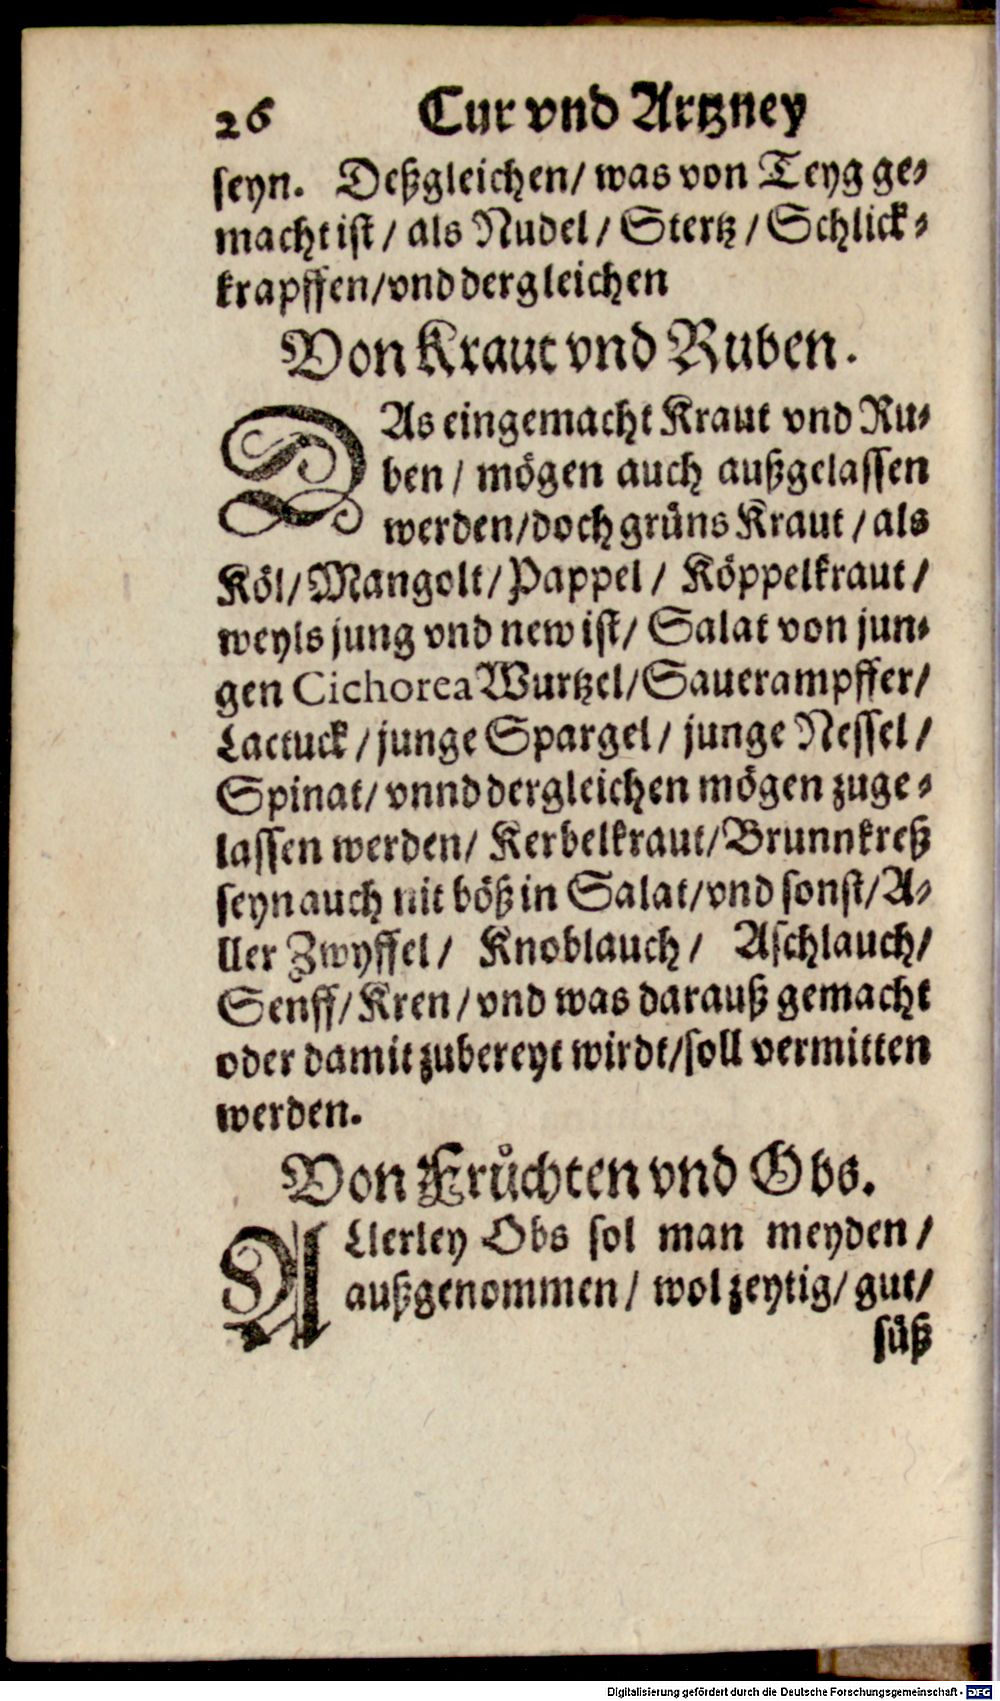 26 Cur vnd Artzney
seyn. Deßgleichen/ was von Teyg ge-
macht ist / als Nudel / Stertz / Schlick-
krapffen/vnd dergleichen
Von Kraut vnd Ruben.
DAs eingemacht Kraut vnd Ru-
ben / mögen auch außgelassen
werden/doch grüns Kraut / als
Köl/Mangolt/Pappel / Köppelkraut /
weyls jung vnd new ist/ Salat von jun-
gen Cichorea Wurtzel/Sauerampffer/
Lactuck / junge Spargel / junge Nessel /
Spinat/ vnnd dergleichen mögen zuge-
lassen werden/ Kerbelkraut/Brunnkreß
seyn auch nit böß in Salat/vnd sonst/A-
ller Zwyffel / Knoblauch / Aschlauch/
Senff/Kren / vnd was darauß gemacht
oder damit zubereyt wirdt/soll vermitten
werden.
Von Fruͤchten vnd Obs.
ALlerley Obs sol man meyden /
außgenommen / wol zeytig/ gut/
süß
Digitalisierung gefördert durch die Deutsche Forschungsgemeinschaft - DFG